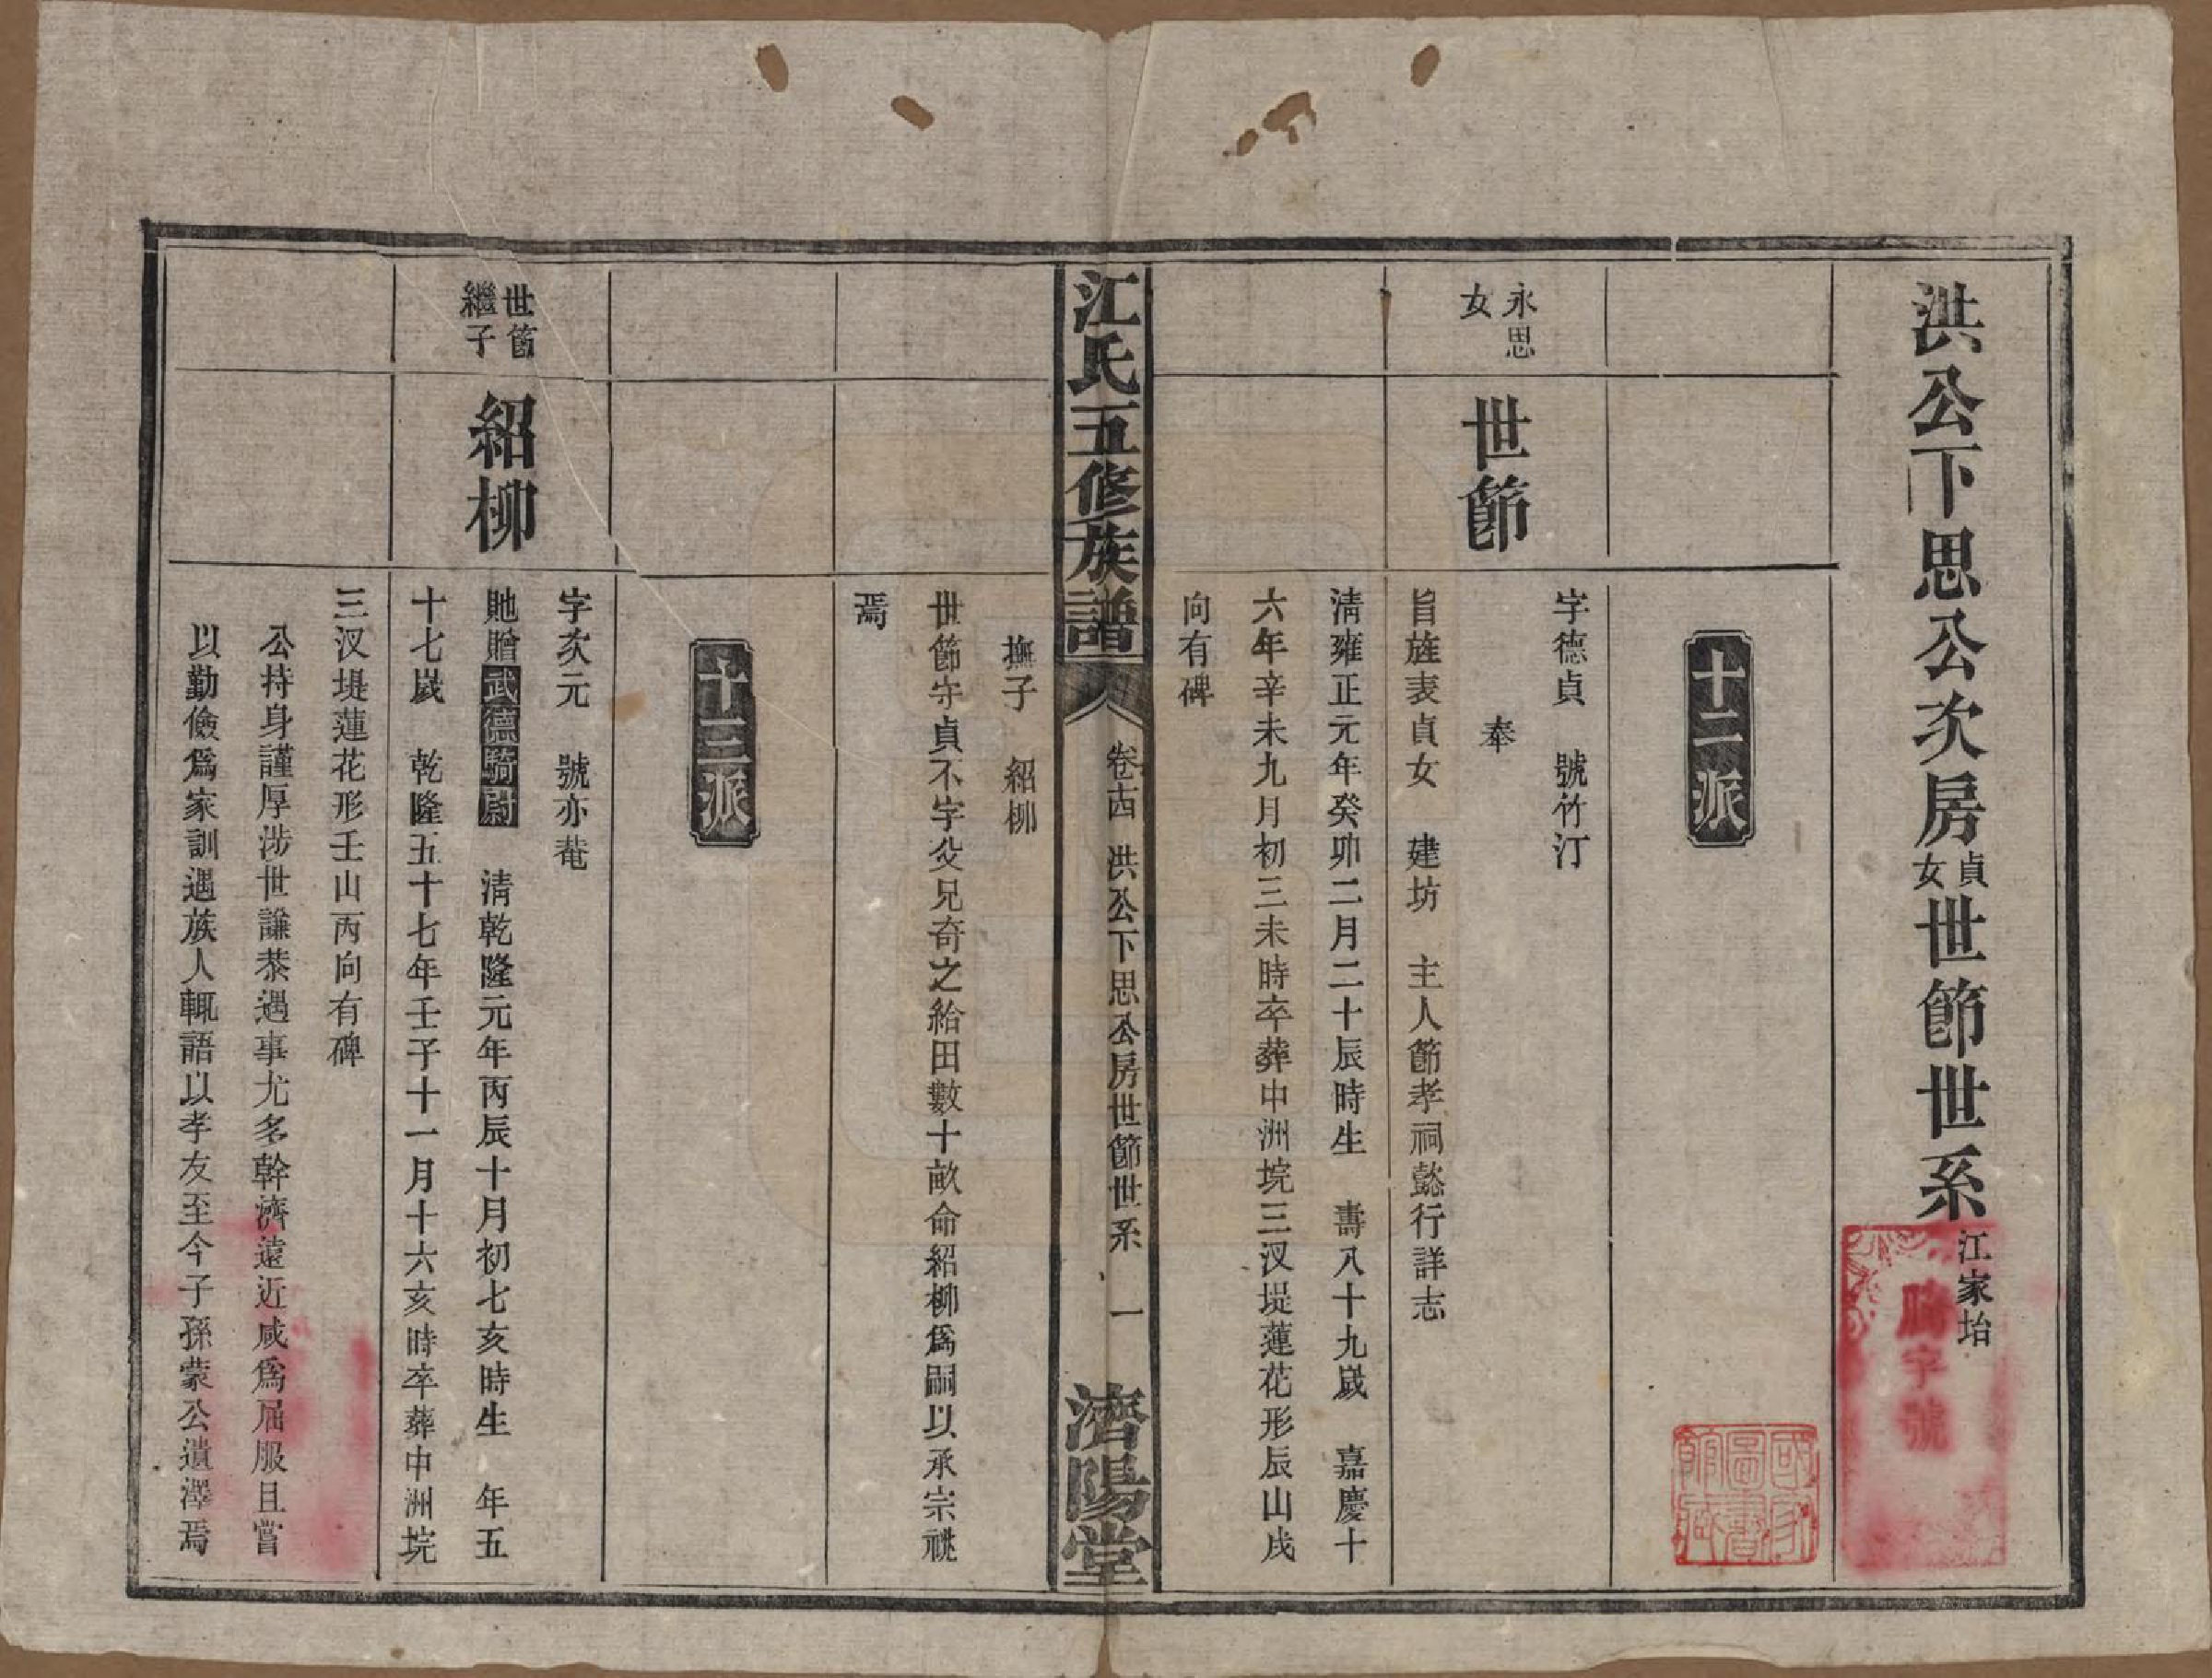 洪公下思公次房貞女世節世系江家坮
十二派
永思女
世節
字德貞　號竹汀
奉
旨旌表貞女　建坊　主人節孝祠懿行詳志
清雍正元年癸卯二月二十辰時生　壽八十九歲　嘉慶十
六年辛未九月初三未時卒葬中洲垸三汊堤蓮花形辰山戌
向有碑
江氏五修族譜
卷十四　洪公下思公房世節世系　一
濟陽堂
撫子　紹柳
世節守貞不字父兄奇之給田數十畝命紹柳爲嗣以承宗祧
焉
十三派
世節繼子
紹柳
字次元　號亦菴
貤贈武德騎尉　清乾隆元年丙辰十月初七亥時生　年五
十七歲　乾隆五十七年壬子十一月十六亥時卒葬中洲垸
三汊堤蓮花形壬山丙向有碑
公持身謹厚涉世謙恭遇事尤多幹濟遠近咸爲屈服且嘗
以勤儉爲家訓遇族人輒語以孝友至今子孫蒙公遺澤焉
字號
國家圖書館藏